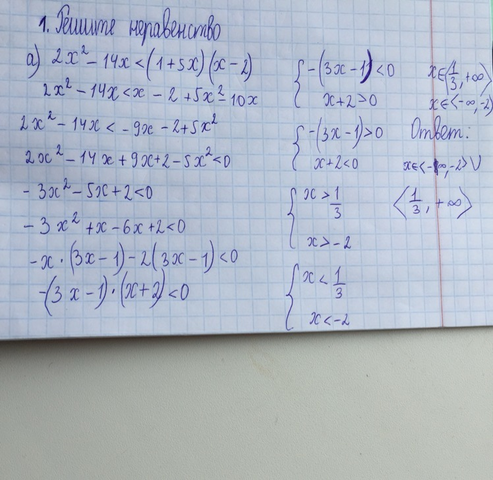 1. Решите неравенство
а) 2x² - 14x < (1+5x)(x-2)
2x² - 14x < x - 2 + 5x² - 10x
2x² - 14x < -9x - 2 + 5x²
2x² - 14x + 9x + 2 - 5x² < 0
- 3x² - 5x + 2 < 0
- 3x² + x - 6x + 2 < 0
-x · (3x-1) - 2(3x-1) < 0
-(3x-1) · (x+2) < 0
{ -(3x-1) < 0
x+2 > 0
{ -(3x-1) > 0
x+2 < 0
{ x > 1/3
x > -2
{ x < 1/3
x < -2
x ∈ ⟨1/3, +∞⟩
x ∈ ⟨-∞, -2⟩
Ответ:
x ∈ ⟨-∞, -2⟩ ∪
⟨1/3, +∞⟩